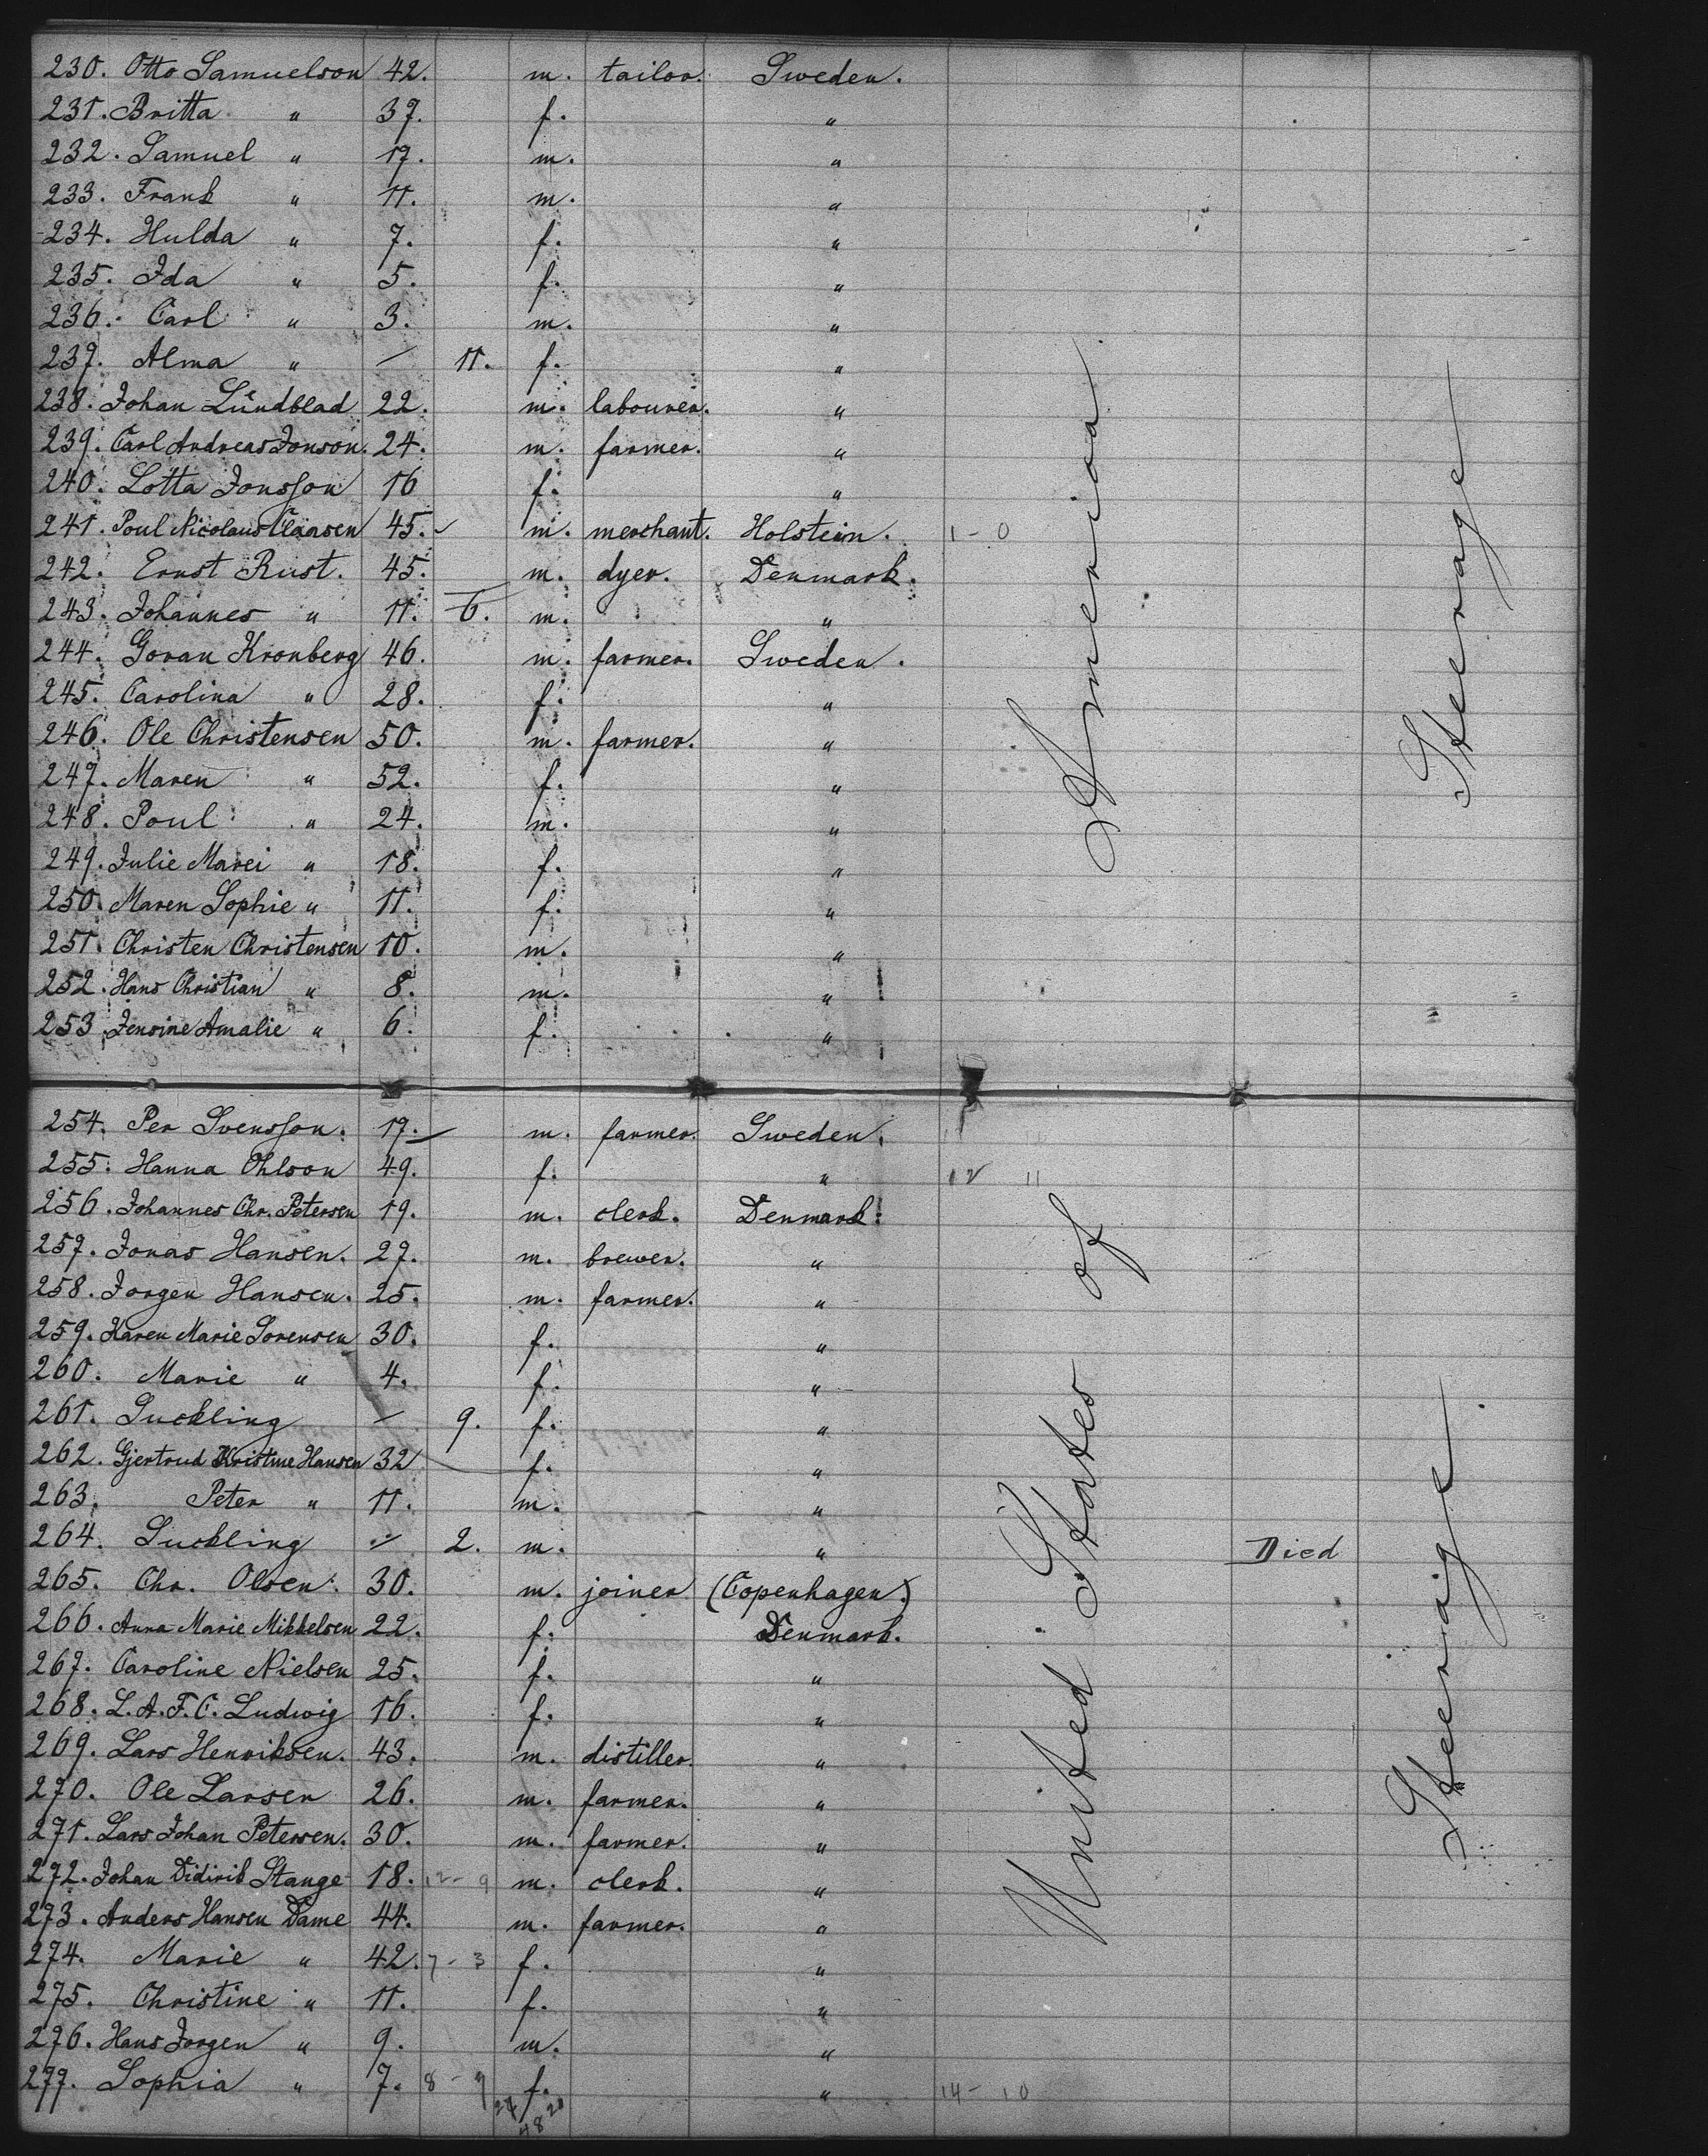 230. Otto Samuelson 42. m. tailor. Sweden.
231. Britta " 37. f. "
232. Samuel " 17. m. "
233. Frank " 11. m. "
234. Hulda " 7. f. "
235. Ida " 5. f. "
236. Carl " 3. m. "
237. Alma " — 11. f. "
238. Johan Lundblad 22. m. labourer. "
239. Carl Andreas Jonson. 24. m. farmer. "
240. Lotta Jonsson 16 f. "
241. Poul Nicolaus Claasen 45. m. merchant. Holstein. 1 - 0
242. Ernst Rust. 45. m. dyer. Denmark.
243. Johannes " 11. 6. m. "
244. Goran Kronberg 46. m. farmer. Sweden.
245. Carolina " 28. f. "
246. Ole Christensen 50. m. farmer. "
247. Maren " 52. f. "
248. Poul " 24. m. "
249. Julie Marei " 18. f. "
250. Maren Sophie " 11. f. "
251. Christen Christensen 10. m. "
252. Hans Christian " 8. m. "
253 Jensine Amalie " 6. f. "
254. Per Svensson. 17. m. farmer. Sweden.
255. Hanna Ohlson 49. f. " 12 11
256. Johannes Chr. Petersen 19. m. clerk. Denmark.
257. Jonas Hansen. 27. m. brewer. "
258. Jorgen Hansen. 25. m. farmer. "
259. Karen Marie Sorensen 30. f. "
260. Marie " 4. f. "
261. Suckling — 9. f. "
262. Gjertrud Kristine Hansen 32 f. "
263. Peter " 11. m. "
264. Suckling — 2. m. " Died
265. Chr. Olsen. 30. m. joiner (Copenhagen)
266. Anna Marie Mikkelsen 22. f. Denmark.
267. Caroline Nielsen 25. f. "
268. L. A. F. C. Ludwig 16. f. "
269. Lars Henriksen. 43. m. distiller. "
270. Ole Larsen 26. m. farmer. "
271. Lars Johan Petersen. 30. m. farmer. "
272. Johan Didirik Stange 18. 12 - 9 m. clerk. "
273. Anders Hansen Dame 44. m. farmer. "
274. Marie " 42. 7 - 3 f. "
275. Christine " 11. f. "
276. Hans Jorgen " 9. m. "
277. Sophia " 7. 8 - 9 f. " 14 - 10
24 20
48
United States of America
Steerage
Steerage